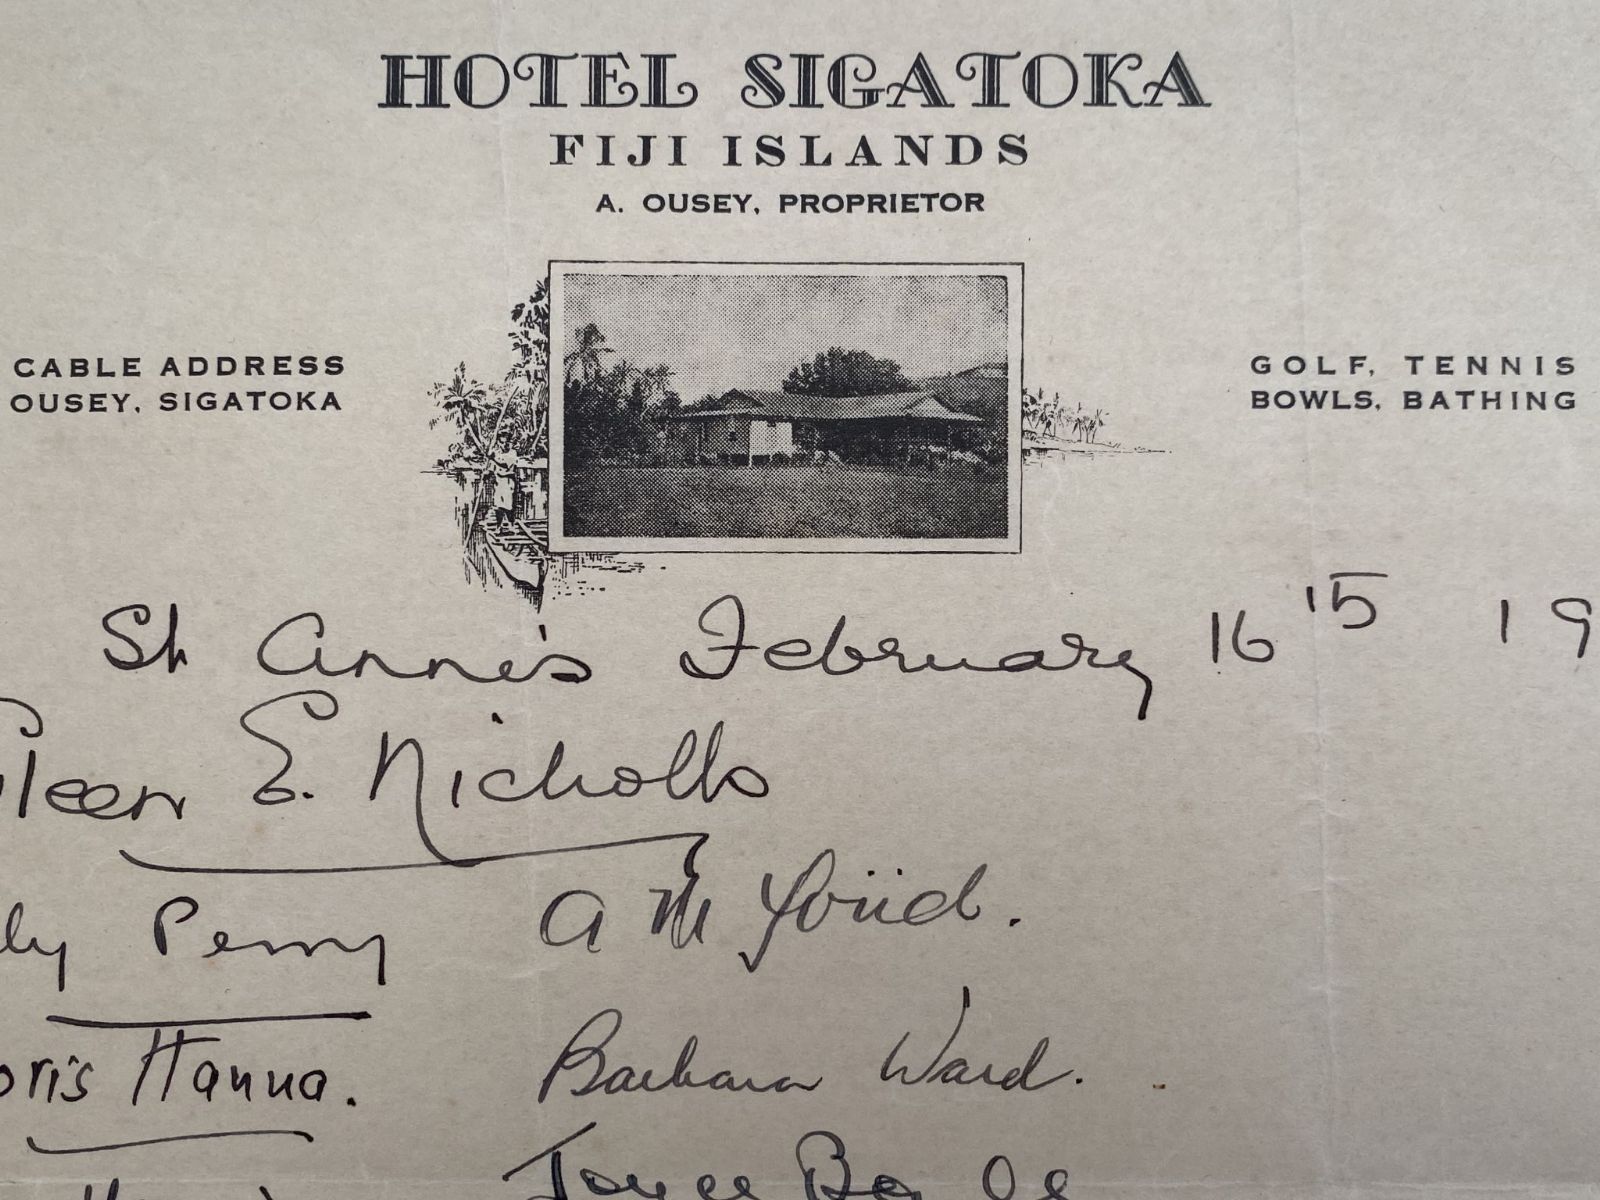 HOTEL SIGATOKA
FIJI ISLANDS
A. OUSEY, PROPRIETOR
CABLE ADDRESS
OUSEY, SIGATOKA
GOLF, TENNIS
BOWLS, BATHING
St Anne's February 16 15 19
Eileen E. Nicholls
Perry A M
oris Hanna. Barbara Ward.
Joyce